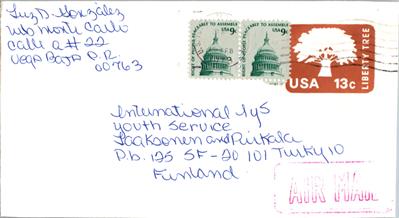 Luz D. González
Urb monte Carlo
calle a # 22
Vega Baja P.R.
00763
RIGHT OF PEOPLE PEACEABLY TO ASSEMBLE
USA 9c
RIGHT OF PEOPLE PEACEABLY TO ASSEMBLE
USA 9c
FEB
USA 13c
LIBERTY TREE
International
youth Service
Laaksonen and Pirkala
P.b. 125 SF-20 101 Turku 10
Finland
AIR MAIL